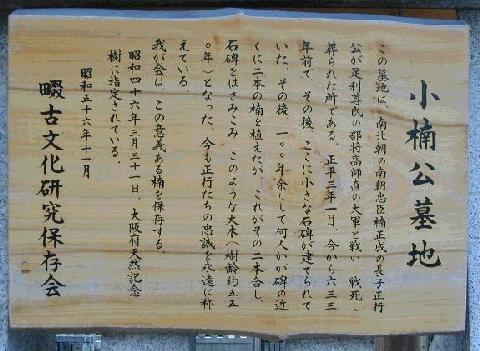 小楠公墓地
この墓地は、南北朝の南朝忠臣楠正成の長子正行
公が足利尊氏の部将高師直の大軍と戦い戦死し
葬られた所である。正平三年一月、今から六三三
年前で、その後、ここに小さな石碑が建てられて
いた。その後、一〇〇年余にして何人かが碑の近
くに二本の楠を植えたが、これがその二本合し、
石碑をはさみこみ、このような大木(樹齢約五五
〇年)となった。今も正行たちの忠誠を永遠に称
えている
我が会は、この意義ある楠を保存する
昭和四十六年三月三十一日、大阪府天然記念
樹に指定されている。
昭和五十六年十一月
畷古文化研究保存会